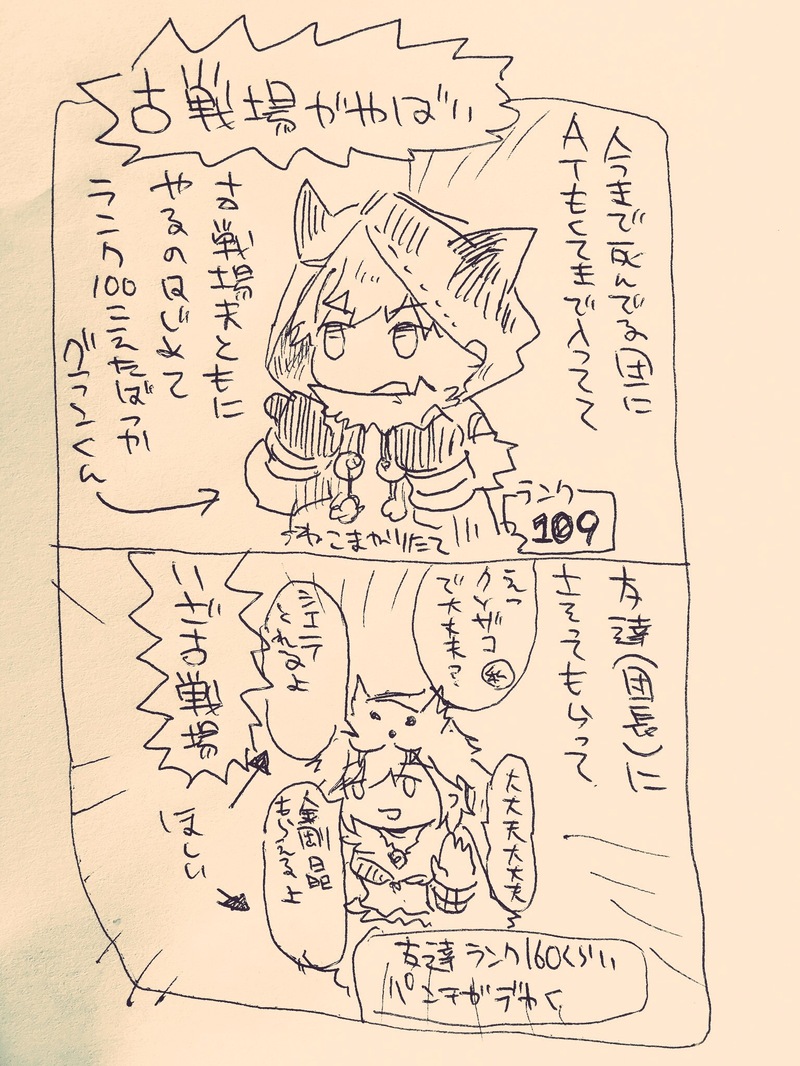 古戦場がやばい
今まで死んでる団に
ATもくてきで入ってて
古戦場まともに
やるのはじめて
ランク100こえたばっか
グランくん
うわこまがりたて
ランク
109
友達(団長)に
さそってもらって
えっ
クソザコ
で大丈夫?
私
大丈夫大丈夫
シエテ
とれるよ
金剛晶
もらえるよ
いざ古戦場
ほしい
友達ランク160くらい
パンチがデカく